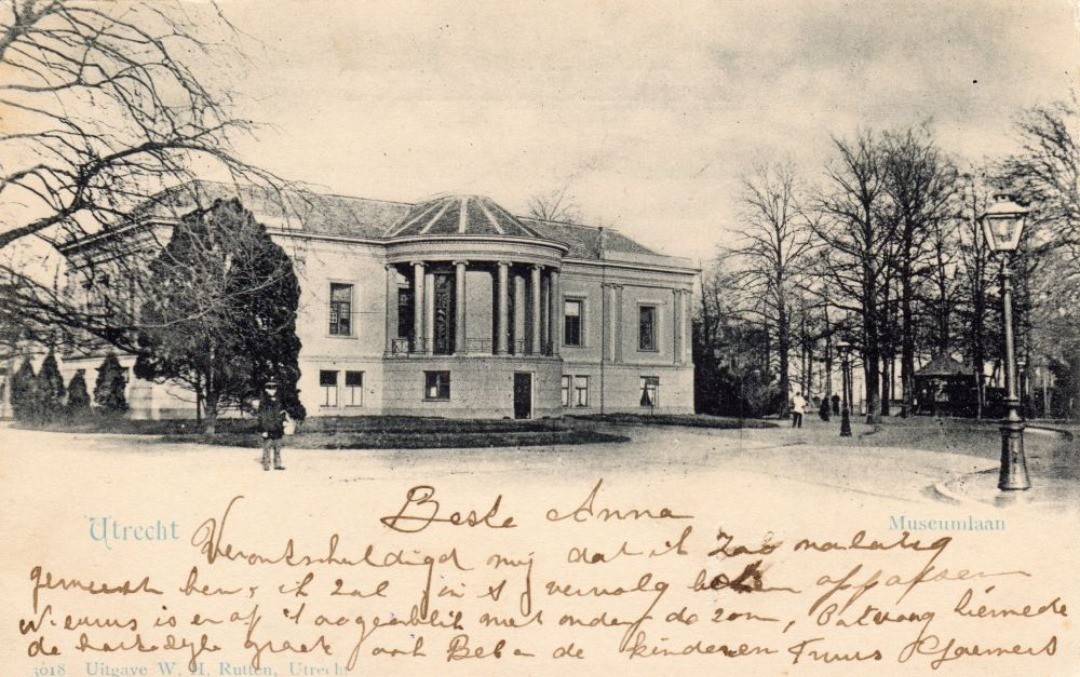 Utrecht
Museumlaan
Beste Anna
Verontschuldigd mij dat ik zoo nalatig
geweest ben, ik zal in 't vervolg beter oppassen
Nieuws is er op 't oogenblik niet onder de zon, Ontvang hiermede
de hartelijke groet ook Beb en de kinderen Truus
3018 Uitgave W. H. Rutten, Utrecht